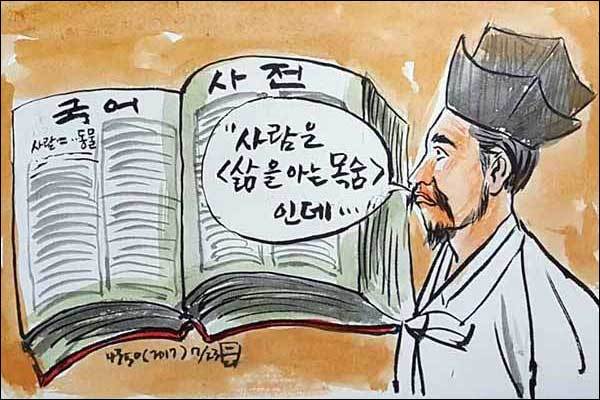 국어 사전
사람=··동물
"사람은
<삶을 아는 목숨>
인데···
(2017)